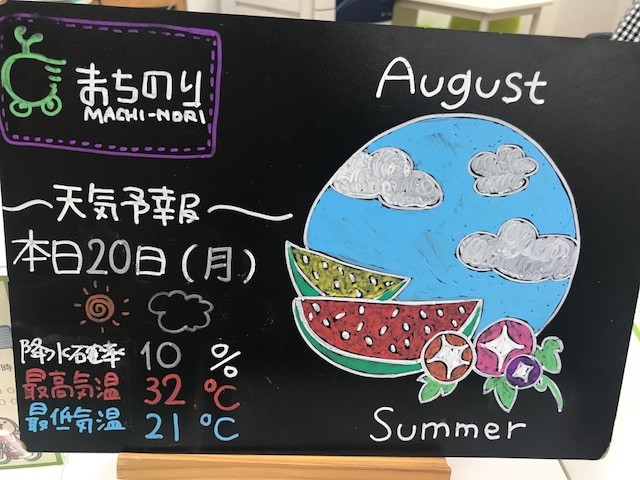 まちのり
MACHI-NORI
August
天気予報
本日20日(月)
降水確率 10 %
最高気温 32 ℃
最低気温 21 ℃
Summer